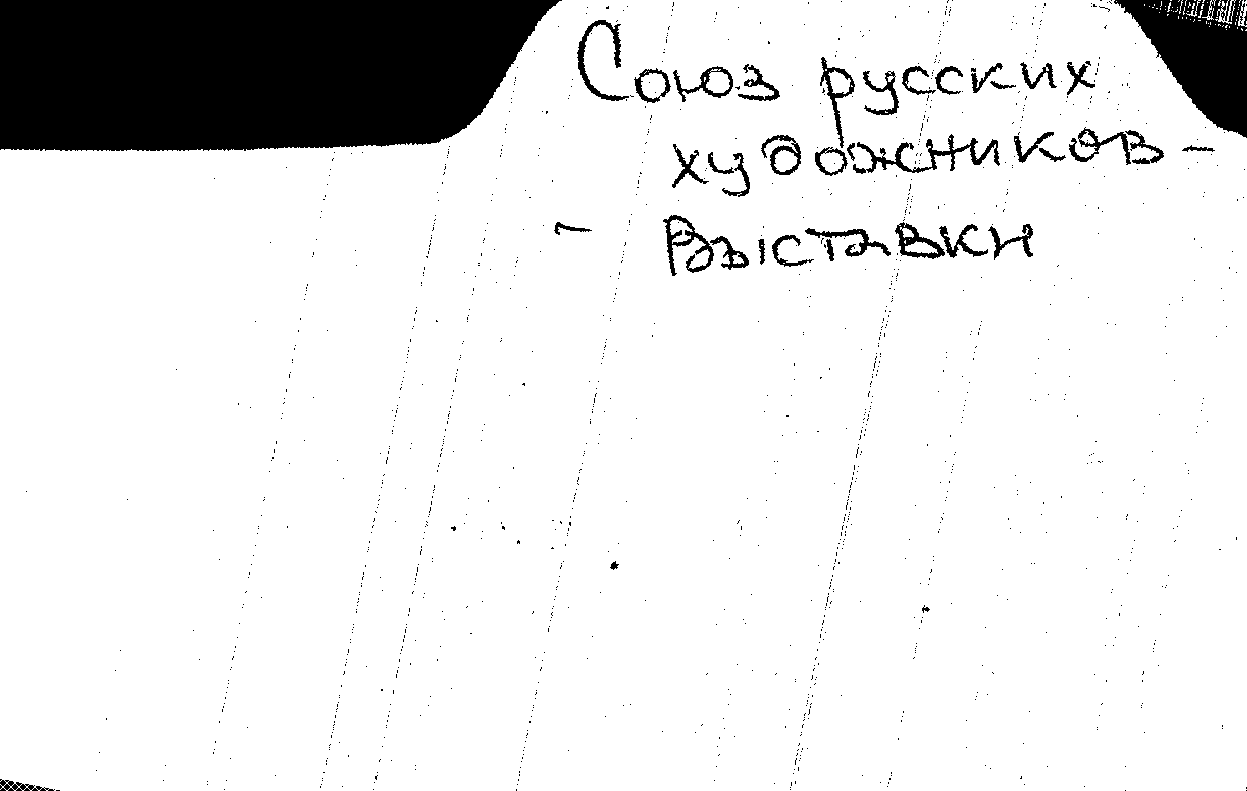 Союз русских
художников -
- Выставки